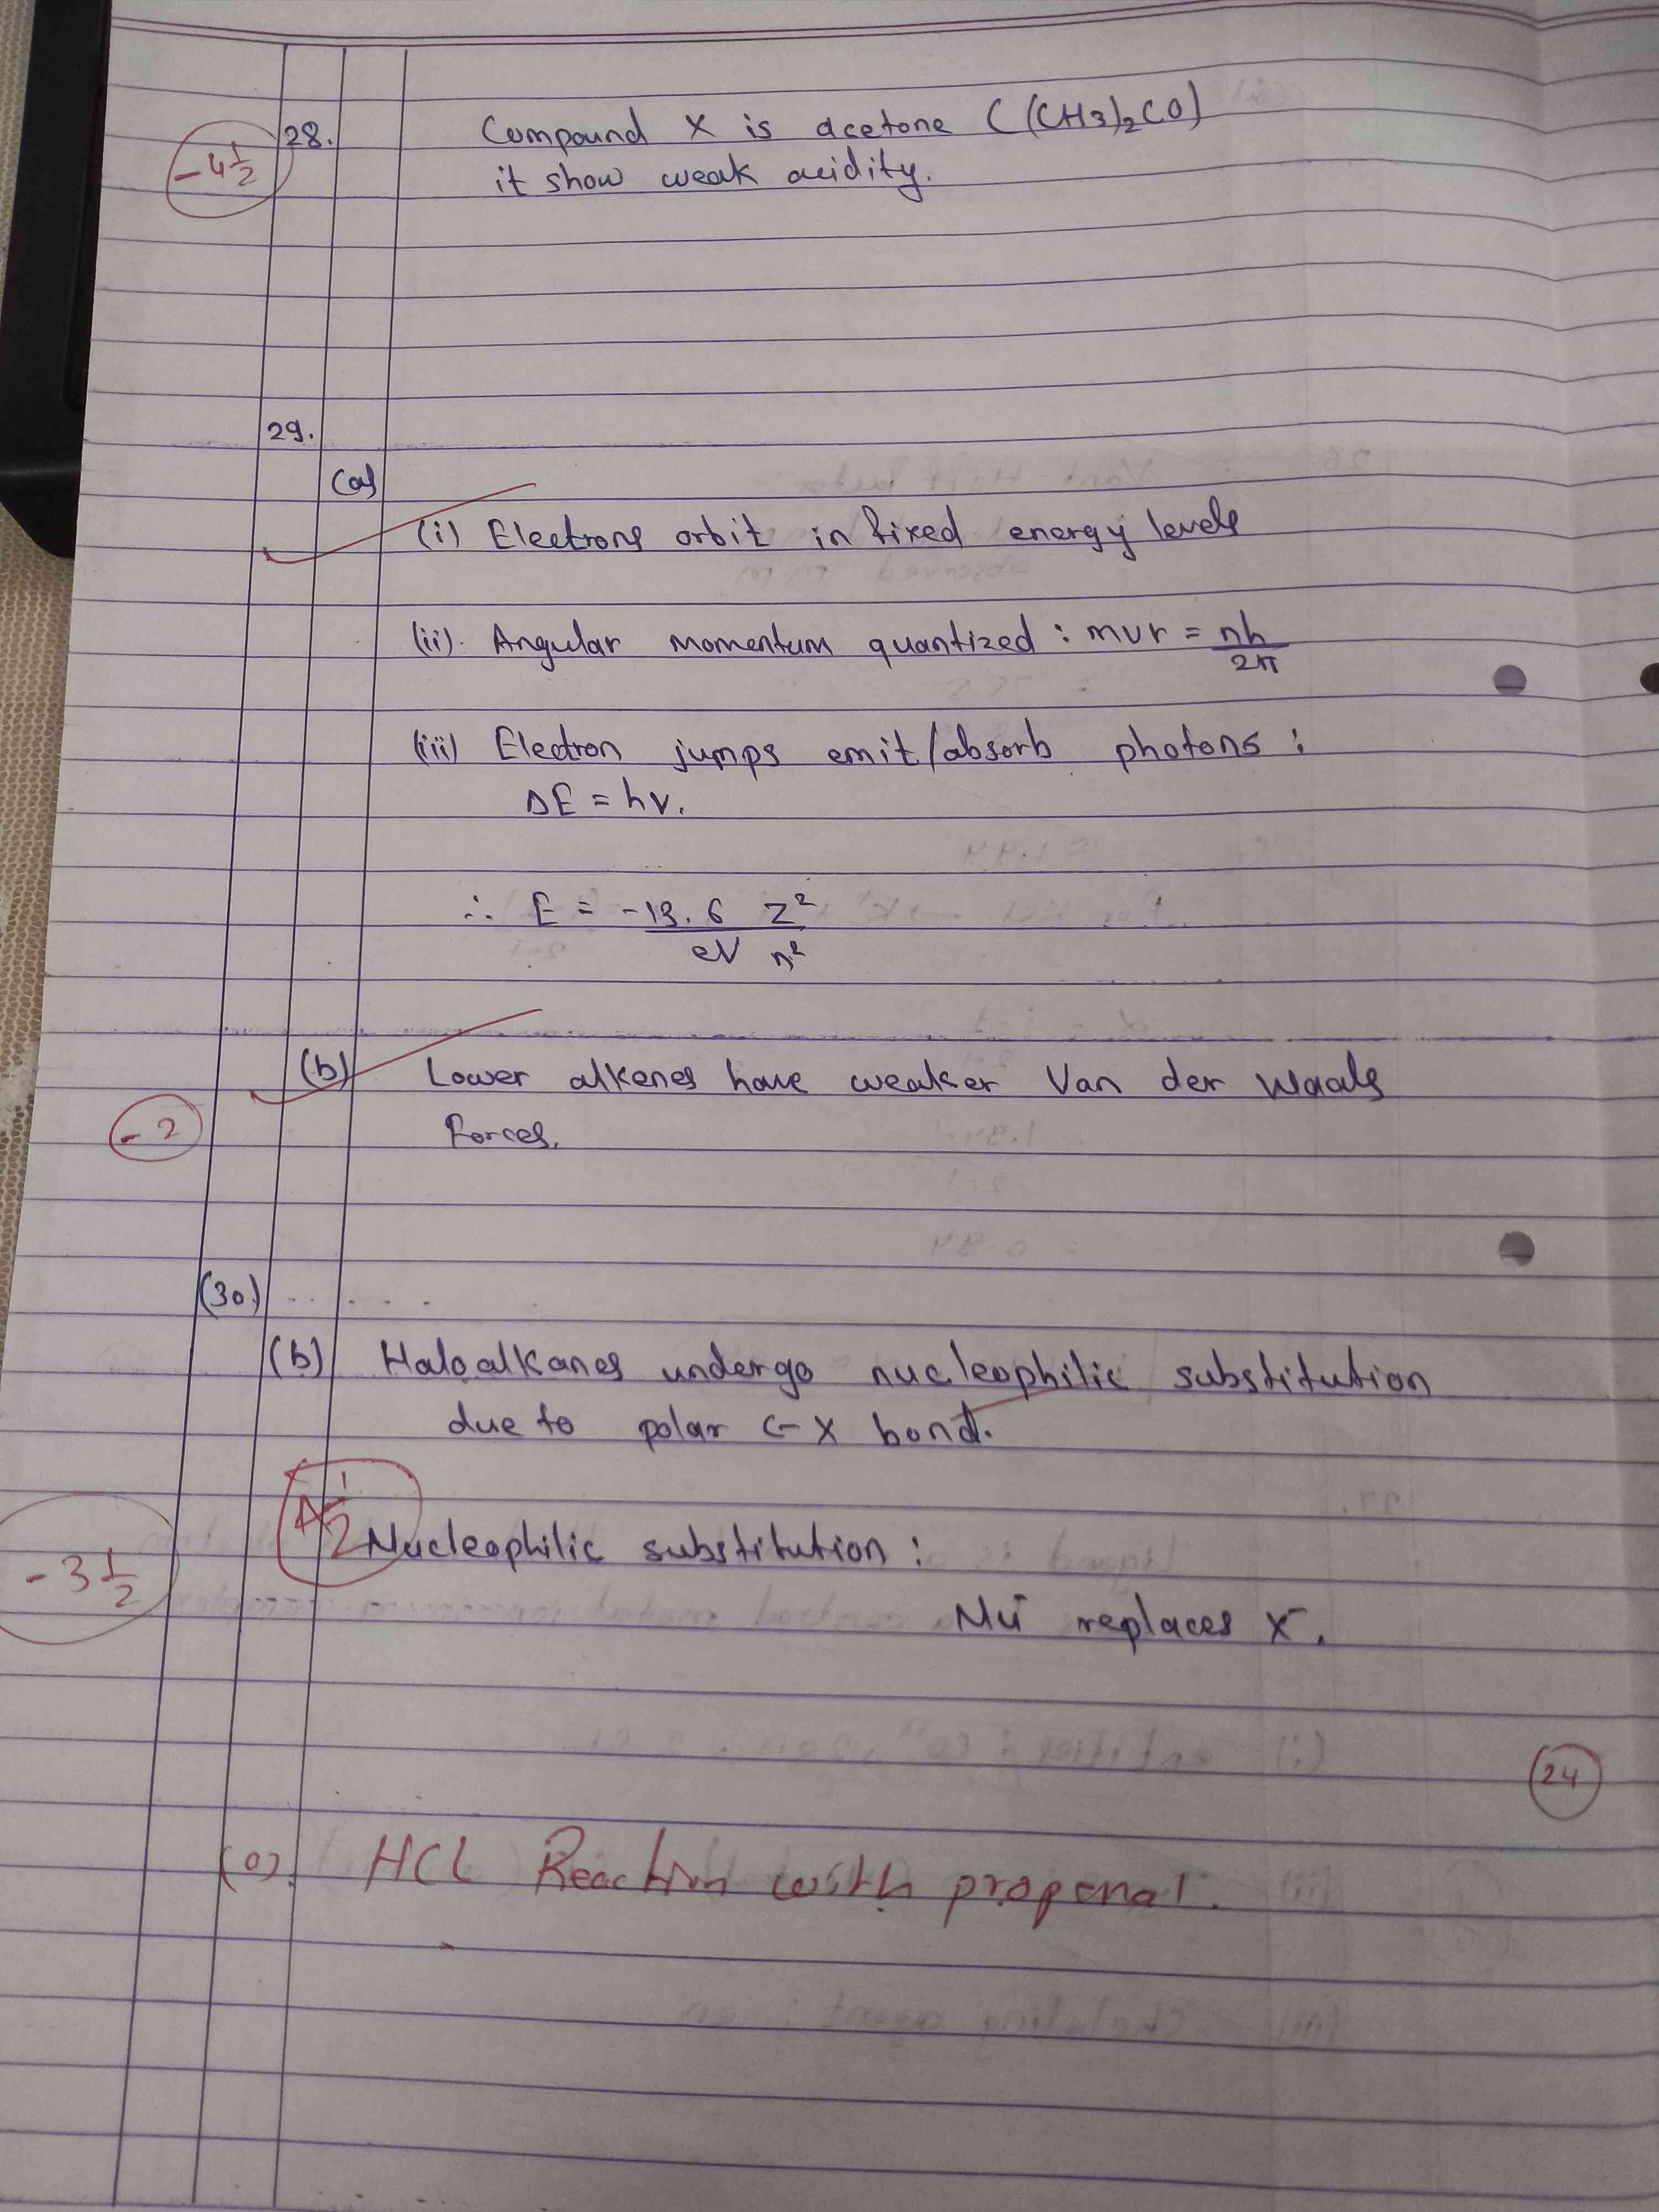 28. Compound X is acetone ((CH3)2CO)
-4 1/2
it show weak acidity.
29.
(a)
(i) Electrons orbit in fixed energy levels
(ii). Angular momentum quantized : mvr = nh/2π
(iii) Electron jumps emit/absorb photons :
ΔE = hν.
∴ E = -13.6 Z² / eV n²
(b) Lower alkenes have weaker Van der Waals
-2
forces.
(30.)
(b) Haloalkanes undergo nucleophilic substitution
due to polar C-X bond.
1/2
Nucleophilic substitution :
-3 1/2
Nu⁻ replaces X⁻.
24
(a). HCl Reaction with propenal.